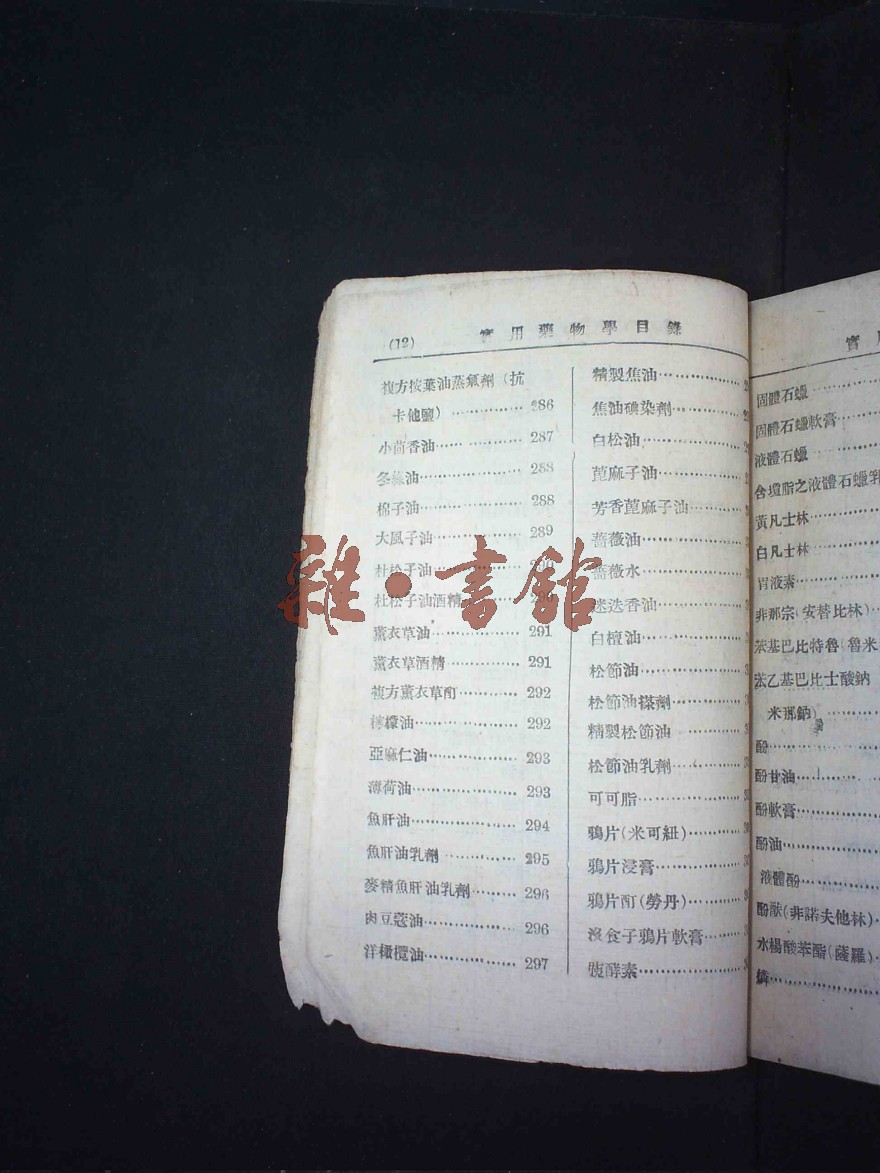 (12) 實用藥物學目錄
複方按葉油蒸氣劑(抗
卡他鹽) 286
小茴香油 287
冬綠油 288
棉子油 288
大風子油 289
杜松子油 290
杜松子油酒精
薰衣草油 291
薰衣草酒精 291
複方薰衣草酊 292
檸檬油 292
亞麻仁油 293
薄荷油 293
魚肝油 294
魚肝油乳劑 295
麥精魚肝油乳劑 296
肉豆蔻油 296
洋橄欖油 297
精製焦油
焦油碘染劑
白松油
萞麻子油
芳香萞麻子油
薔薇油
薔薇水
迷迭香油
白檀油
松節油
松節油搽劑
精製松節油
松節油乳劑
可可脂
鴉片(米可紐)
鴉片浸膏
鴉片酊(勞丹)
沒食子鴉片軟膏
胰酵素
實
固體石蠟
固體石蠟軟膏
液體石蠟
含瓊脂之液體石蠟乳
黃凡士林
白凡士林
胃液素
非那宗(安替比林)
苯基巴比特魯(魯米
苯乙基巴比士酸鈉
米那鈉)
酚
酚甘油
酚軟膏
酚油
液體酚
酚猷(非諾夫他林)
水楊酸苯酯(薩羅)
燐
雜·書館